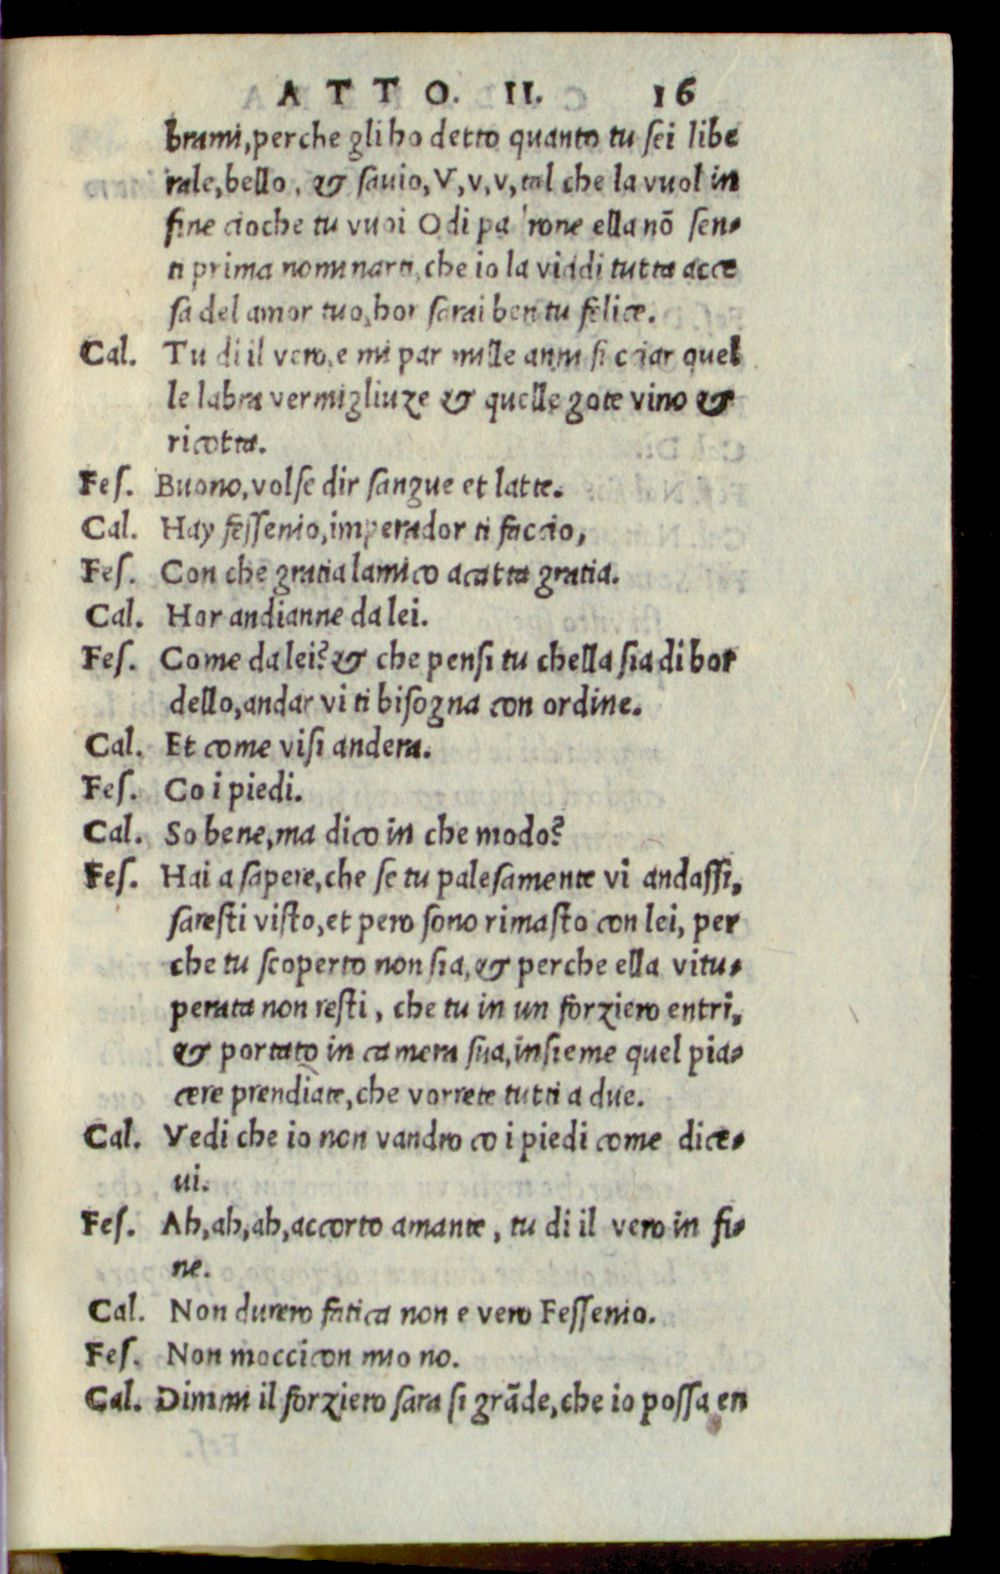 ATTO. II. 16
brami, perche gli ho detto quanto tu sei libe
rale, bello, & savio, V, v, v, tal che la vuol in
fine cioche tu vuoi Odi pa rone ella nõ sen-
ti prima nominarti, che io la viddi tutta acce
sa del amor tuo, hor sarai ben tu felice.
Cal. Tu di il vero, e mi par mille anni si ciar quel
le labra vermigliuze & quelle gote vino &
ricotta.
Fes. Buono, volse dir sangue et latte.
Cal. Hay fessenio, imperador ti faccio,
Fes. Con che gratia lamico acatta gratia.
Cal. Hor andianne da lei.
Fes. Come da lei? & che pensi tu chella sia di bor
dello, andar vi ti bisogna con ordine.
Cal. Et come visi andera.
Fes. Co i piedi.
Cal. So bene, ma dico in che modo?
Fes. Hai a sapere, che se tu palesamente vi andassi,
saresti visto, et pero sono rimasto con lei, per
che tu scoperto non sia, & perche ella vitu-
perata non resti, che tu in un forziero entri,
& portato in camera sua, insieme quel pia-
cere prendiate, che vorrete tutti a due.
Cal. Vedi che io non vandro co i piedi come dice-
ui.
Fes. Ah, ah, ah, accorto amante, tu di il vero in fi-
ne.
Cal. Non durero fatica non e vero Fessenio.
Fes. Non moccicon mio no.
Cal. Dimmi il forziero sara si grãde, che io possa en